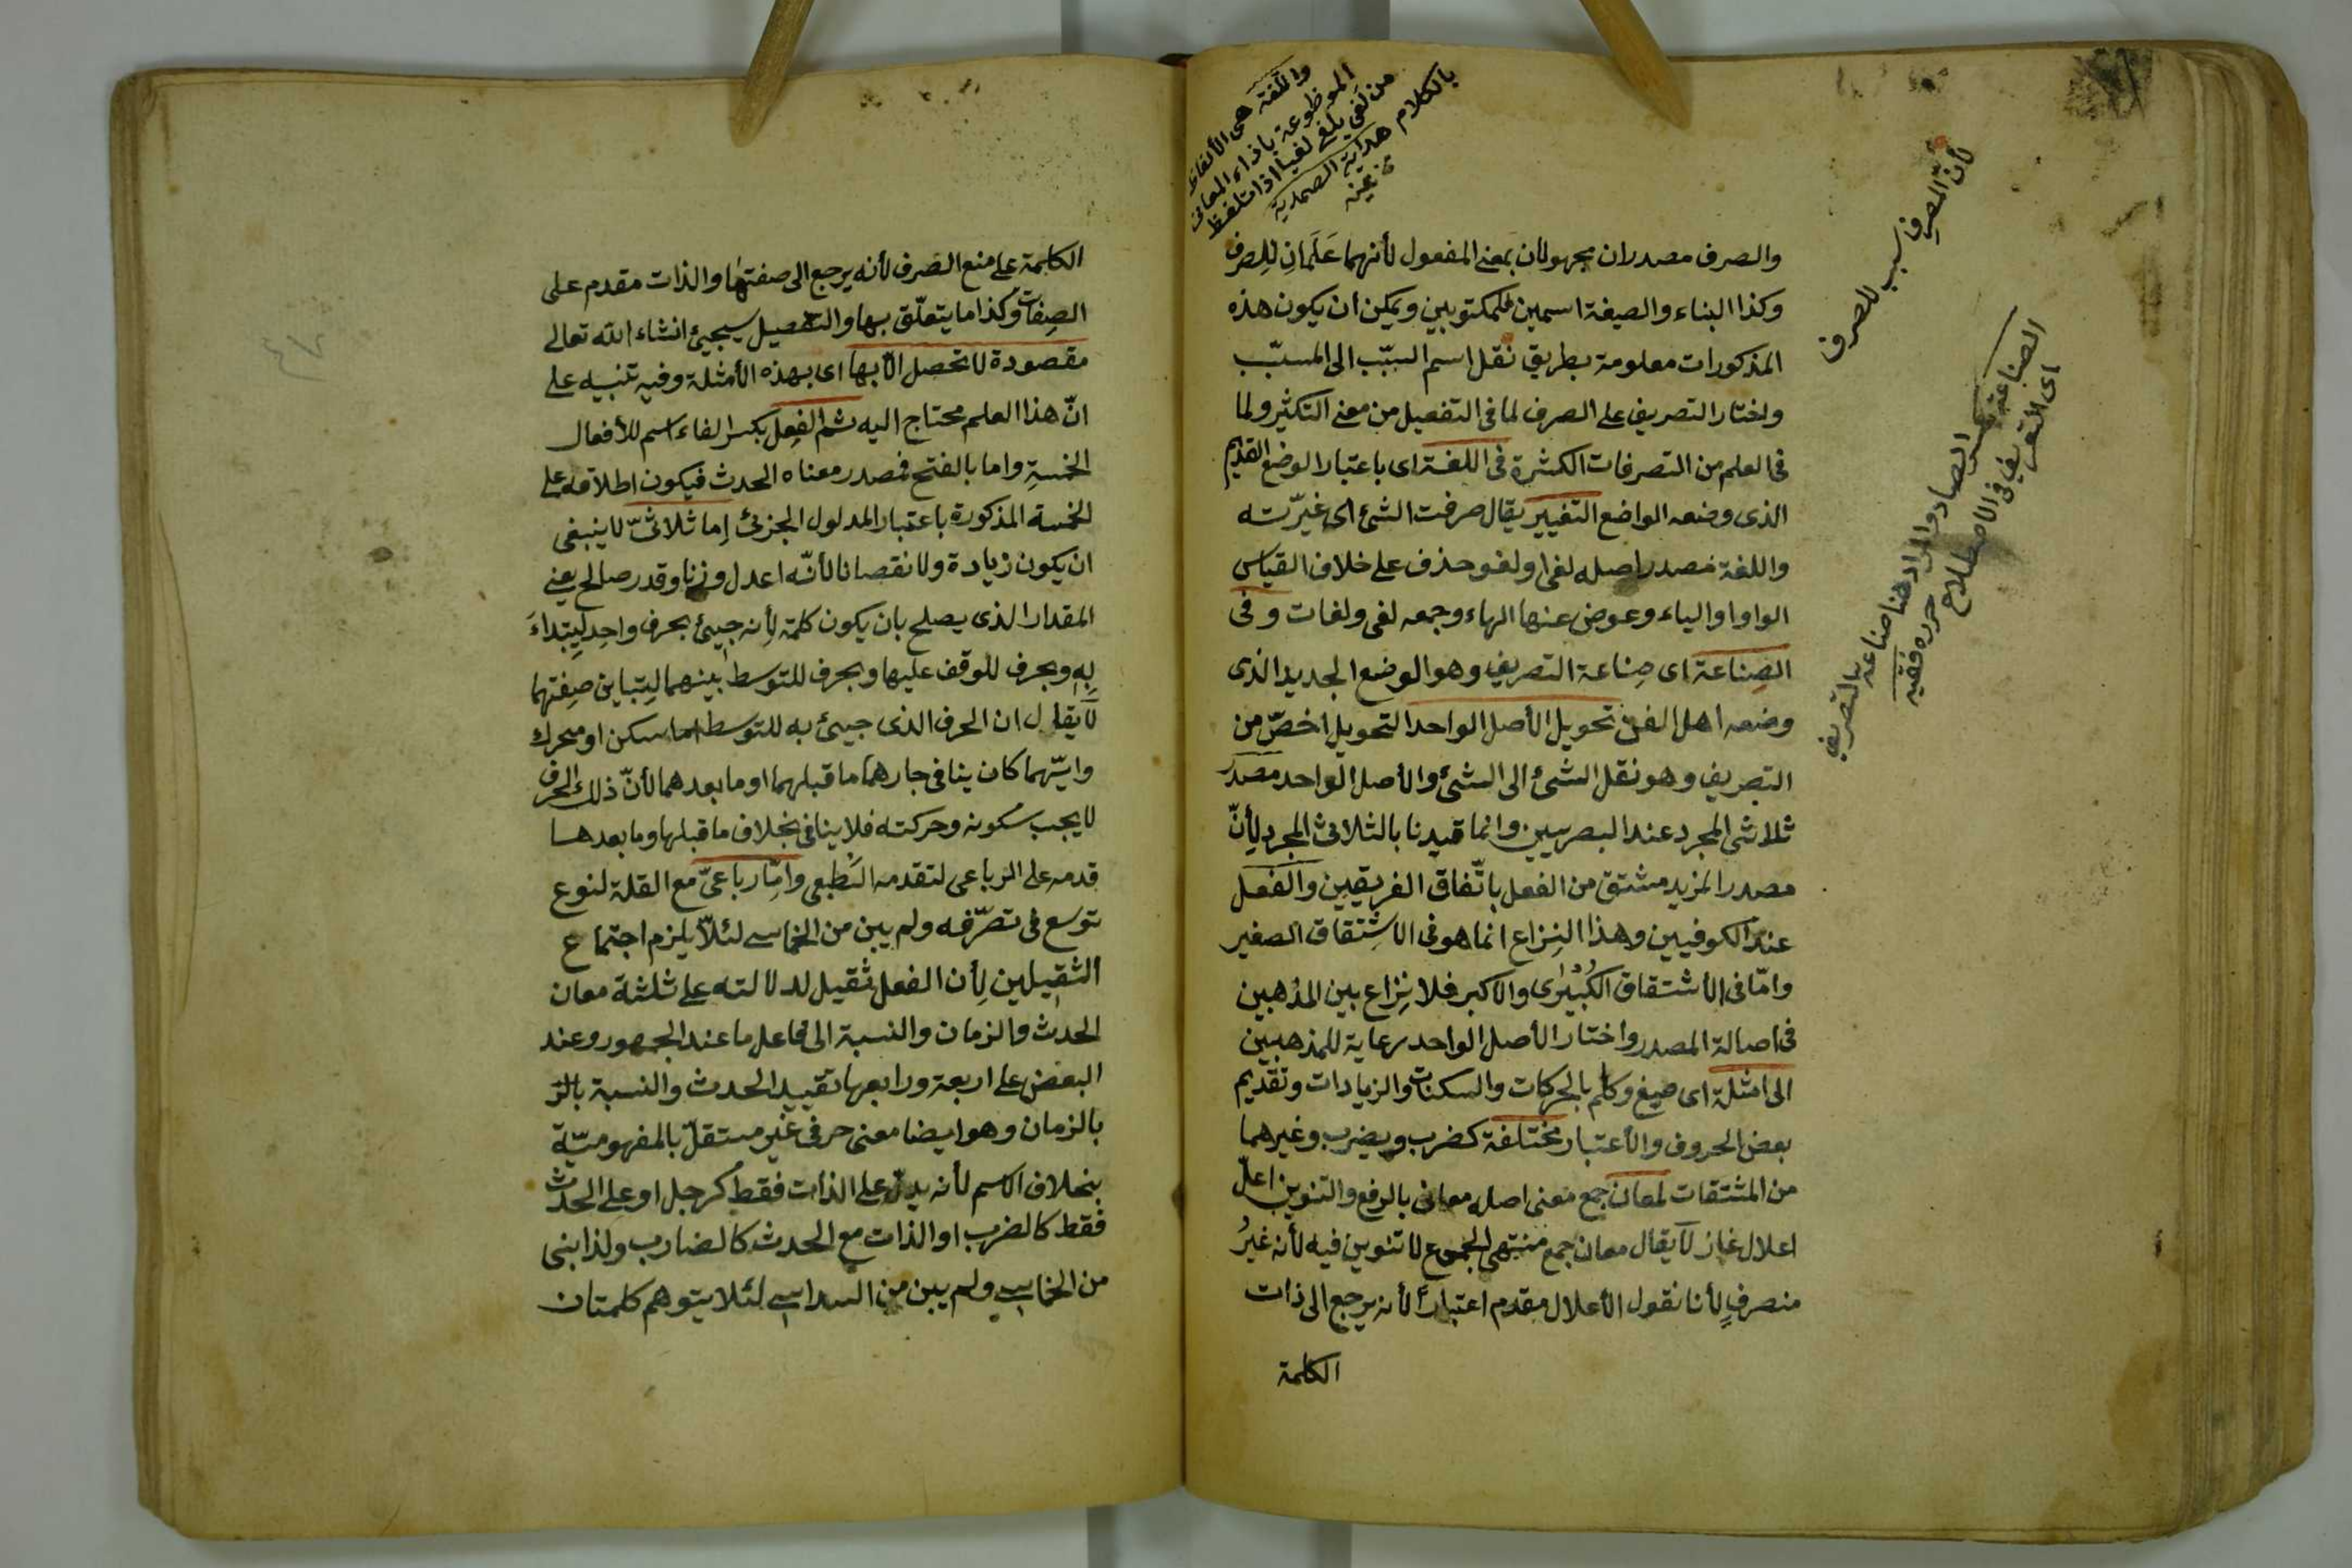 واللغة هى الألفاظ
الموظوعة بإذاء المعانى
من لغى يلغى لغيا اذا تلفظ
بالكلام هداية الصمدية
لأن المصرف سبب للصرف
الصناعة بكسر الصاد والمراد هنا صناعة بالتصريف
اى التعريف فى الاصطلاح حرره فقيه
والصرف مصدران مجهولان بمعنى المفعول لأنهما عَلَمانِ لِلصرف
وكذا البناء والصيغة اسمين فلمكتوبين ويمكن ان يكون هذه
المذكورات معلومة بطريق نقل اسم السبّب الى المسبّب
واختار التصريف على الصرف لما فى التفعيل من معنى التكثير ولما
فى العلم من التصرفات الكثيرة فى اللغة اى باعتبار الوضع القديم
الذى وضعه الواضع التغيير يقال صرفت الشئ اى غيّرته
واللغة مصدر اصله لغى او لغو حذف على خلاف القياس
الواو او الياء وعوض عنها الهاء وجمعه لغى ولغات وفى
الصِناعة اى صِناعة التصريف وهو الوضع الجديد الذى
وضعه اهل الفن تحويل الأصل الواحد التحويل اخصّ من
التصريف وهو نقل الشئ الى الشئ والأصل الواحد مصدر
ثلاثى المجرد عند البصريين وانما قيدنا بالثلاثى المجرد لِأنّ
مصدر المزيد مشتق من الفعل باتّفاق الفريقين والفعل
عند الكوفيين وهذا النِزاع انما هو فى الاشِتقاق الصغير
وامّا فى الأشتقاق الكبير والاكبر فلا نِزاع بين المذهبين
فى اصالة المصدر واختار الأصل الواحد رعاية للمذهبين
الى امثلة اى صيغ وكلم بالحركات والسكنات والزيادات وتقديم
بعض الحروف والأعتبار مختلفة كضرب ويضرب وغيرهما
من المشتقات لمعان جمع معنى اصله معانى بالرفع والتنوين اعلّ
اعلال غاز لا يقال معان جمع منتهى الجموع لا تنوين فيه لأنه غيرُ
منصرفٍ لأنا نقول الأعلال مقدم اعتباراً لأنه يرجع الى ذات
الكلمة
الكلمة على منع الصَرف لأنه يرجع الى صفتها والذات مقدم على
الصِفات وكذا ما يتعلّق بها والتفصيل سيجيئ انشاء الله تعالى
مقصودة لا تحصل الّا بها اى بهذه الأمثلة وفيه تنبيه على
انّ هذا العلم محتاج اليه ثم الفِعل بكسر الفاء اسم للأفعال
الخمسةِ واما بالفتح فمصدر معناه الحدث فيكون اطلاقه على
الخمسة المذكورة باعتبار المدلول الجزئ إما ثلاثىّ لا ينبغى
ان يكون زيادة ولا نقصانا لأنّه اعدل وزنا وقدر صالح يعنى
المقدار الذى يصلح بان يكون كلمة لِأنه جيئ بحرف واحِد ليِبتداءَ
بِهِ وبحرف للوقف عليها وبحرف للتوسط بينهما ليِتباين صِفتهما
لا يقال ان الحرف الذى جيئ به للتوسط اما سكن او محرك
وايّهما كان ينافى جارهما ما قبلهما او ما بعدهما لأنّ ذلك الحرف
لا يجب سكونه وحركته فلا ينافى بخلاف ما قبلها وما بعدها
قدمه على الرباعى لتقدمه الطبعى وامّا رباعىّ مع القلة لنوع
توسع فى تصرّفه ولم يبن من الخماسى لئلّا يلزم اجتماع
الثقيلين لِأن الفعل ثقيل لدلالته على ثلثة معان
الحدث والزمان والنسبة الى فاعل ما عند الجمهور وعند
البعض على اربعة ورابعها تقييد الحدث والنسبة بالز
بالزمان وهو ايضا معنى حرفى غير مستقلّ بالمفهوميّة
بخلاف الاسم لأنه يدلّ على الذات فقط كرجل او على الحدث
فقط كالضرب او الذات مع الحدث كالضارب ولذا بنى
من الخماسى ولم يبن من السداسى لئلا يتوهم كلمتان